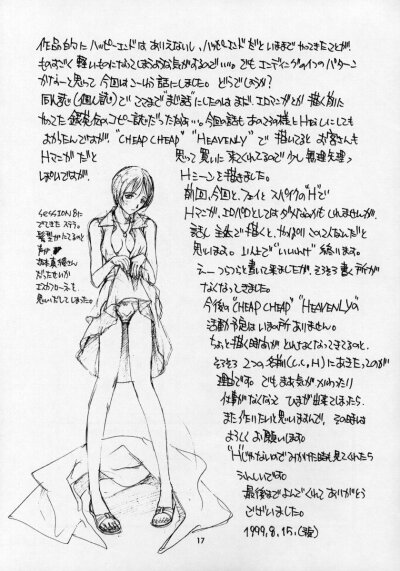 作品的に ハッピーエンドは ありえないし、ハッピーエンドだと いままで やってきたことが
ものすごく 軽いものになってしまうような気がするので…。でも エンディングの1つのパターン
かなーと思って 今回は こーゆう話にしました。どうでしょうか?
同人誌(個人誌)で ここまで"まじ話"にしたのは まだ、エロマンガとか 描く前に
やってた 銀英伝のコピー誌だったかな…。今回の話も あのまま Hなしにしても
よかたんですが、"CHEAP CHEAP" "HEAVENLY"で 描いてると お客さんも
Hマンガだと 思って 買いに 来てくれてるので 少し 無理矢理っ
ぽいですが、 Hシーンを 描きました。
前回、今回と、フェイと スパイクの"H"で
Hマンガ、エロパロとしては ダメダメかも しれませんが、
話し 主体で 描くと、
思います。 "いいわけ" 終ります。
えー つらつらと書いて来ましたが、そろそろ 書く所が
なくなってきました。
今後の "CHEAP CHEAP" "HEAVENLY"の
活動予定は いまの所 ありません。
ちょっと 描く時間が とれなくなってきてるのと、
そろそろ 2つの 名前 にあきたってのが
理由です。でも また 気が かわったり
仕事がなくなって ひまが 出来てしまったら、
また 作りたいと 思いますんで、その時は
よろしく お願いします。
"H"じゃないので みかけた時も 見てくれたら
うれしいです。
最後まで よんでくれて ありがとう
ございました。
1999, 8, 15,
SESSION 8に
でてきた ステラ。
髪型が
声が
坂本真綾さん
だったせいか
エスカフローネを
思いだして しまった。
17